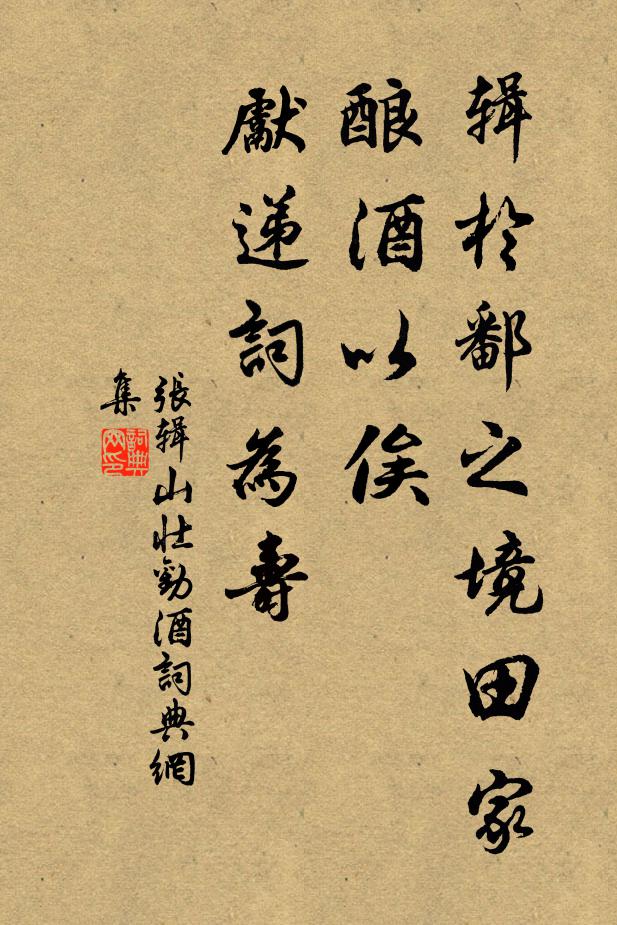 辑於鄱之境田家
酿酒以俟
獻递詞為壽
張辑山壯勸酒詞典網
集
詞典網印